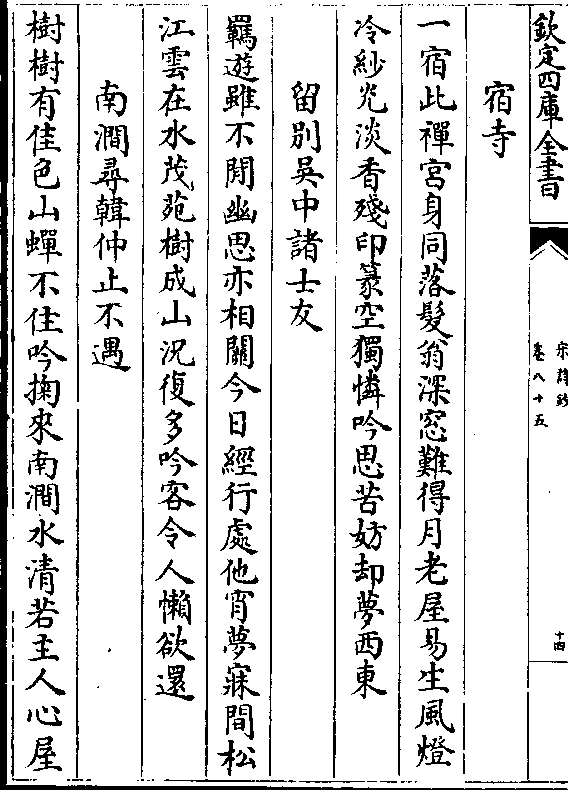 欽定四庫全書
宋詩鈔
卷八十五
十四
宿寺
一宿此禪宮身同落髮翁深窓難得月老屋易生風燈
冷紗光淡香殘印篆空獨憐吟思苦妨却夢西東
留別吳中諸士友
羈遊雖不閒幽思亦相關今日經行處他宵夢寐間松
江雲在水茂苑樹成山況復多吟客令人懶欲還
南澗尋韓仲止不遇
樹樹有佳色山蟬不住吟掬來南澗水清若主人心屋